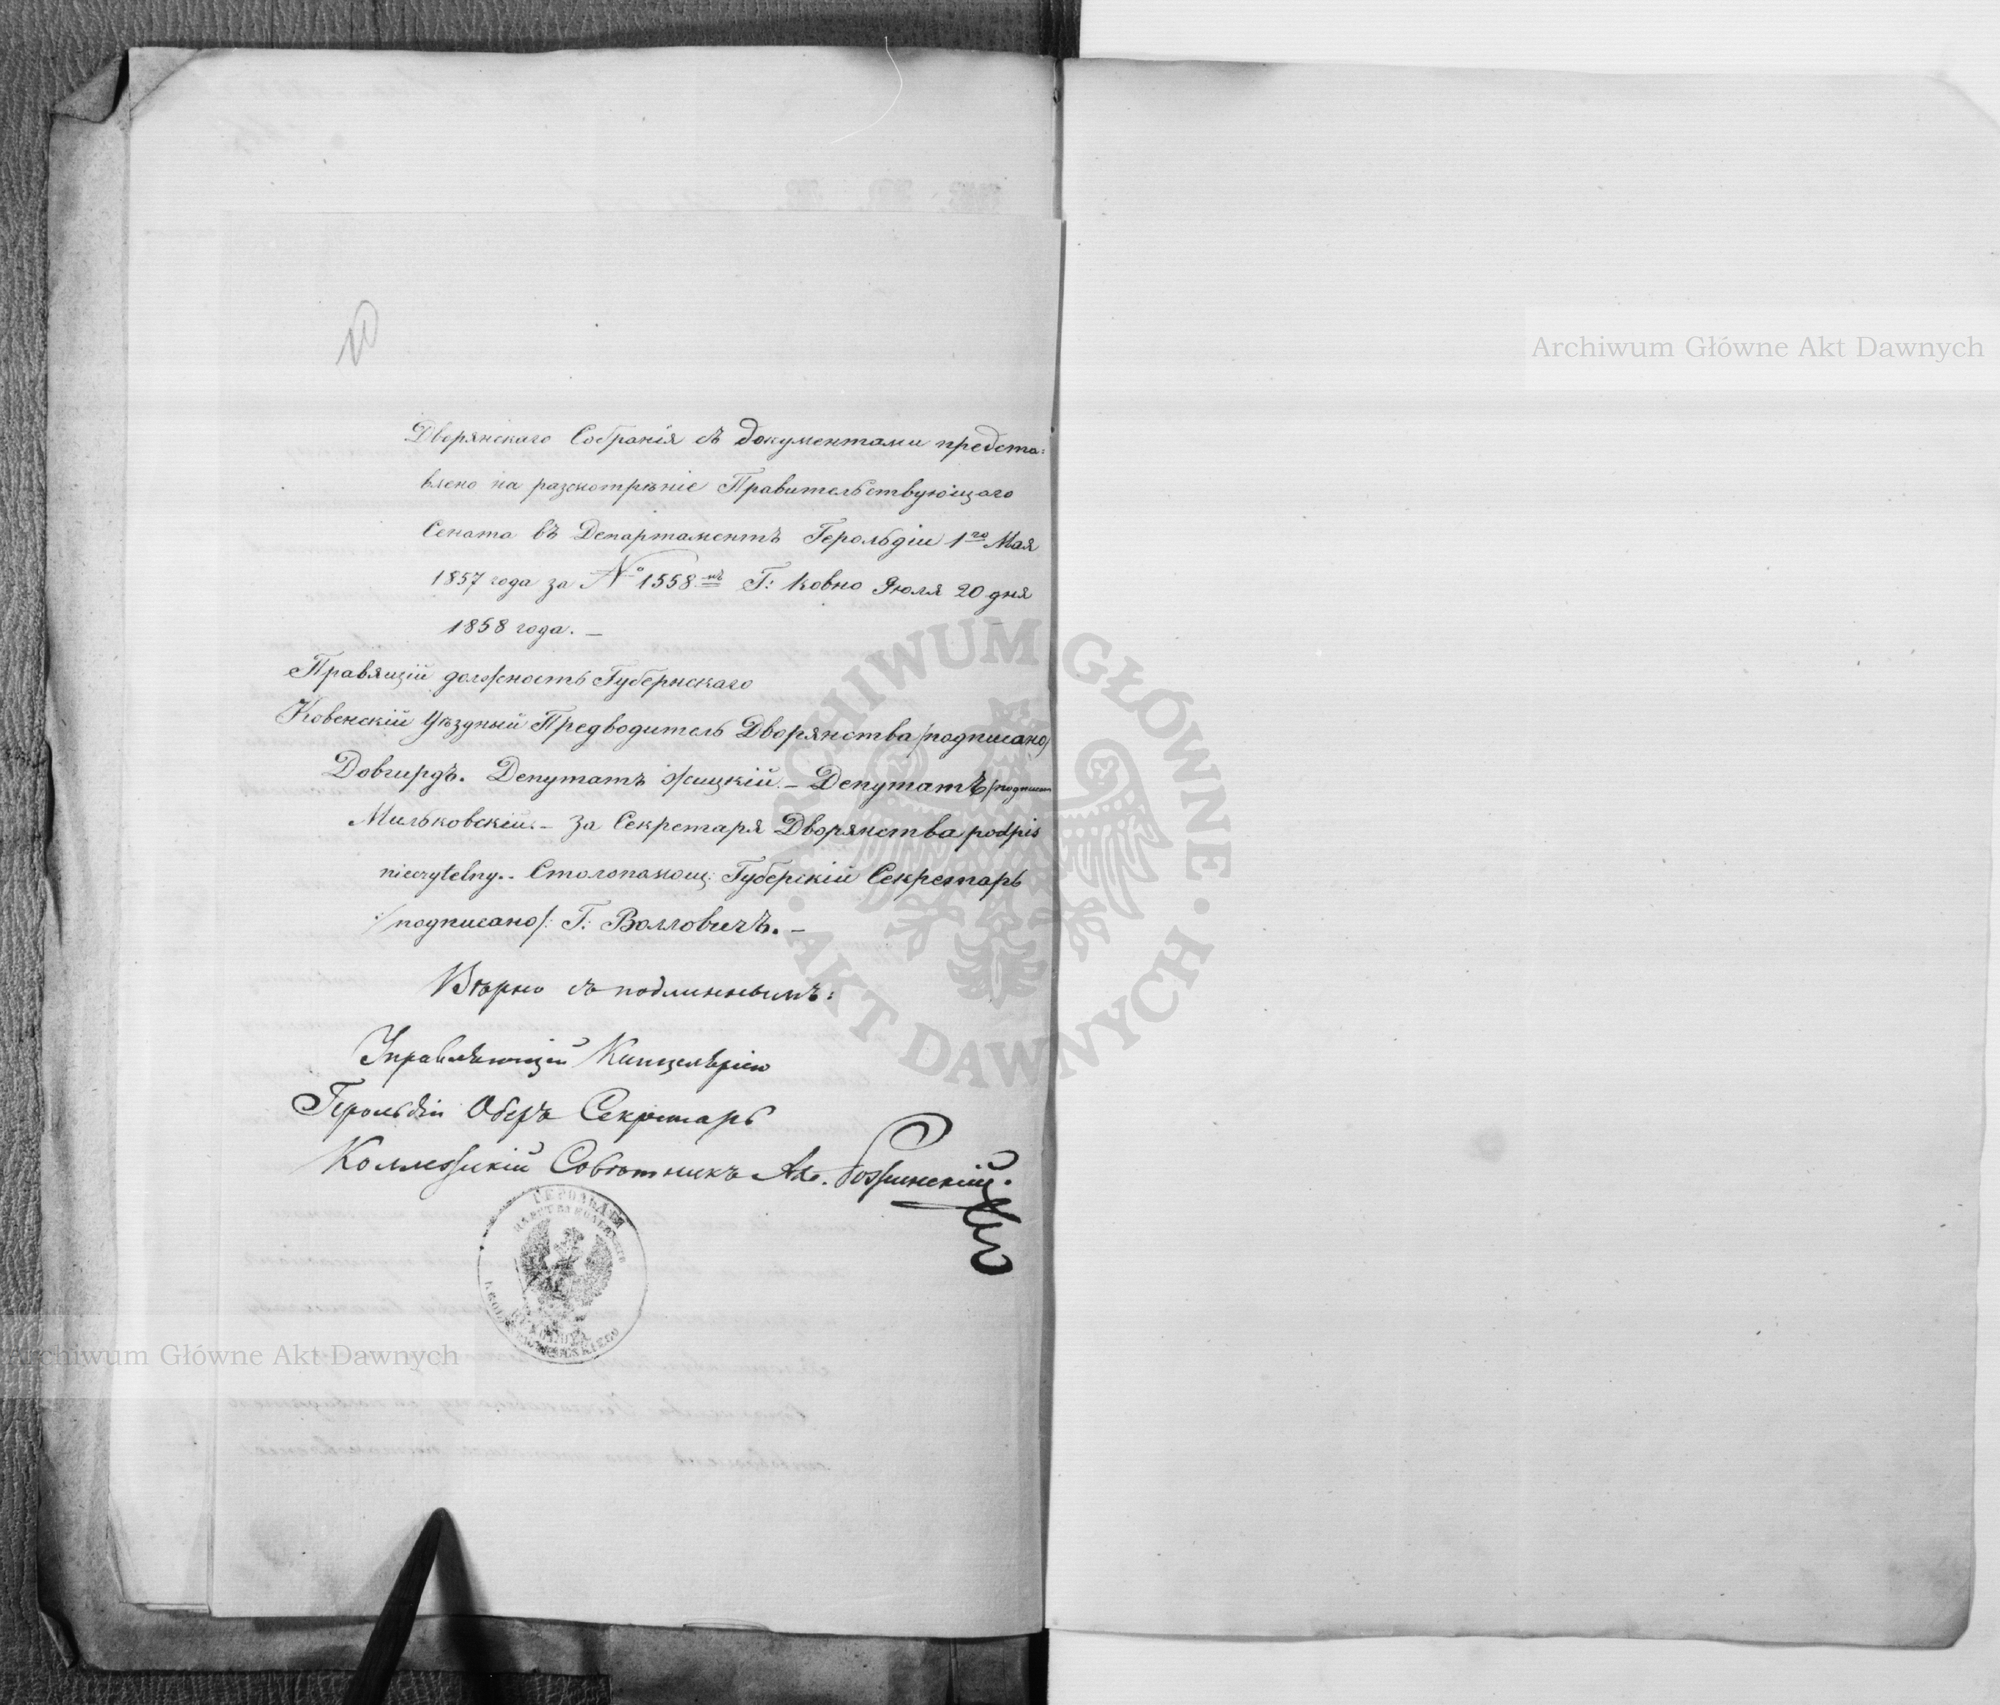 Дворянскаго Собранія съ документами предста-
влено на разсмотрѣніе Правительствующаго
Сената въ Департаментъ Герольдіи 1го Мая
1857 года за № 1558мъ Г: Ковно Іюля 20 дня
1858 года. —
Правящій должность Губернскаго
Ковенскій Уѣздный Предводитель Дворянства /подписано/
Довгирдъ. Депутатъ Жицкій. — Депутатъ /подписан
Мильковскій. — За Секретаря Дворянства podpis
nieczytelny. - Столопомощ: Губерскій Секретарь
:/подписано/: Г: Волловичъ. —
Вѣрно съ подлиннымъ:
Управляющій Канцеляріею
Герольдіи Оберъ Секретарь
Коллежскій Совѣтникъ Ад. Рожинскій.
ГЕРОЛЬДІЯ
ЦАРСТВА ПОЛЬСКАГО
HEROLDYA
KRÓLESTWA POLSKIEGO
Archiwum Główne Akt Dawnych
Archiwum Główne Akt Dawnych
ARCHIWUM GŁÓWNE · AKT DAWNYCH ·